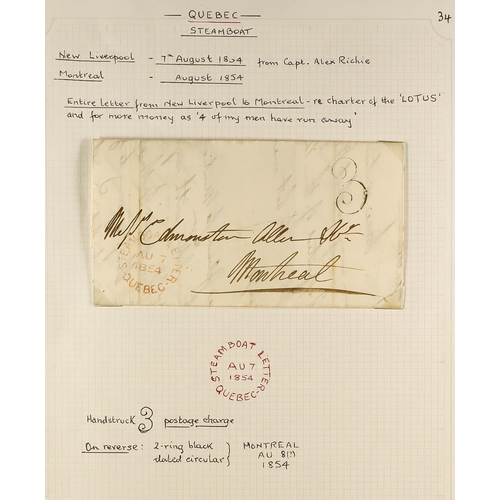 — QUEBEC —
34
STEAMBOAT
New Liverpool - 7th August 1854 from Capt. Alex Richie
Montreal - August 1854
Entire Letter from New Liverpool to Montreal - re charter of the 'LOTUS'
and for more money as '4 of my men have run away'
3
Mess.rs Edmonstone Allan & Co.
Montreal
STEAMBOAT LETTER
AU 7
1854
QUEBEC
STEAMBOAT LETTER
AU 7
1854
QUEBEC
Handstruck 3 postage charge
On reverse: 2-ring black } MONTREAL
dated circular } AU 8(?)
1854